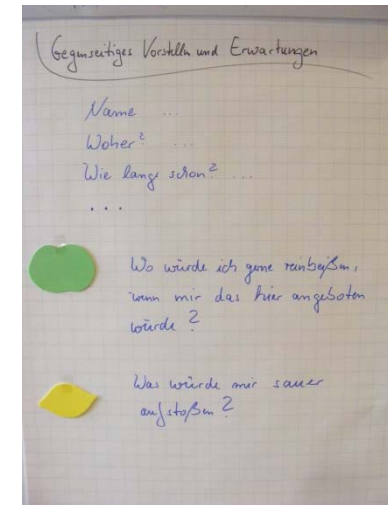 Gegenseitiges Vorstellen und Erwartungen
Name ...
Woher? ...
Wie lange schon? ...
...
Wo würde ich gerne reinbeißen,
wenn mir das hier angeboten
würde?
Was würde mir sauer
aufstoßen?